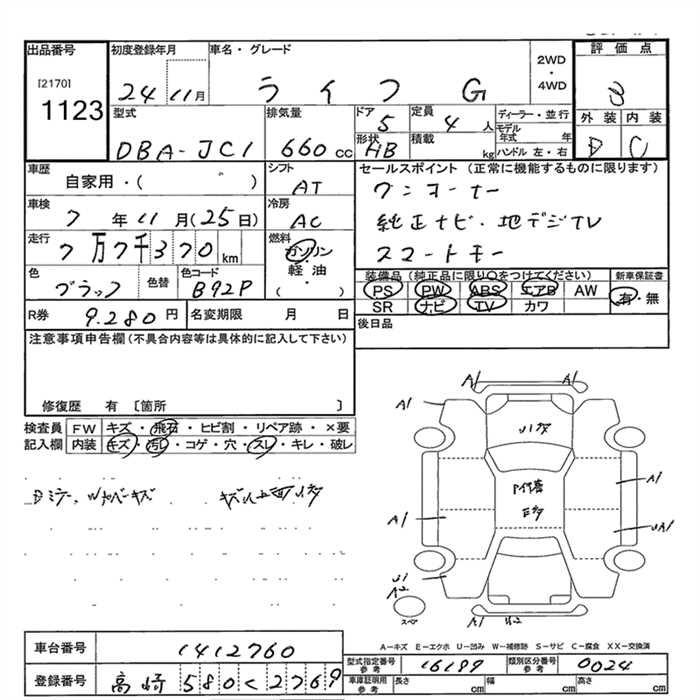 出品番号
[2170]
1123
初度登録年月
24 11月
車名・グレード
ライフ G
2WD
・
4WD
評価点
3
外装 内装
D C
型式
DBA-JC1
排気量
660cc
ドア
5
形状
HB
定員
4人
積載
kg
ディーラー・並行
モデル年式 年
ハンドル 左・右
車歴
自家用・( )
シフト
AT
車検
7年11月(25日)
冷房
AC
走行
7万7千370km
燃料
ガソリン
・
軽油
( )
色
ブラック
色替
色コード
B92P
R券
9.280円
名変期限 月 日
セールスポイント (正常に機能するものに限ります)
ワンオーナー
純正ナビ・地デジTV
スマートキー
装備品(純正品に限り○をつけてください)
PS PW ABS エアB AW
SR ナビ TV カワ
新車保証書
有・無
後日品
注意事項申告欄(不具合内容等は具体的に記入して下さい)
修復歴 有 〔箇所 〕
検査員記入欄
FW キズ・飛石・ヒビ割・リペア跡・×要
内装 キズ・汚レ・コゲ・穴・スレ・キレ・破レ
A1 A1
A1
A1
A1
UA1
U1
A2
A1 U2
スペア
A-キズ E-エクボ U-凹み W-補修跡 S-サビ C-腐食 XX-交換済
車台番号 1412760
登録番号 高崎 580 く 2769
型式指定番号参考 16187
類別区分番号参考 0024
車庫証明用参考 長さ cm 幅 cm 高さ cm